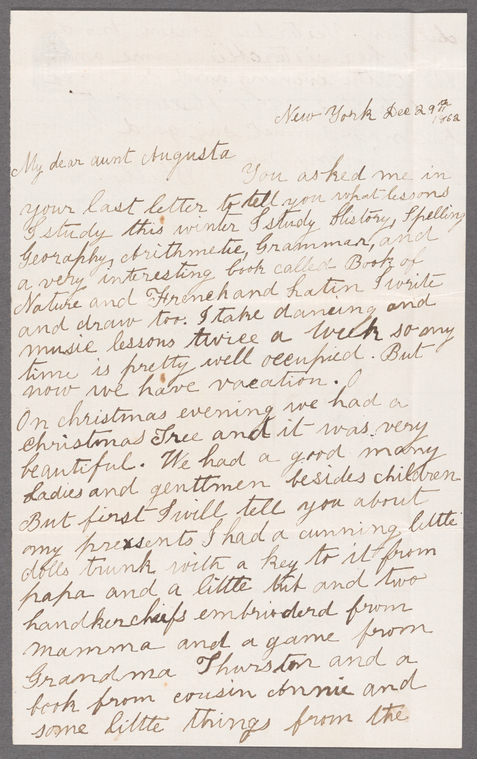 New York Dec 29th
1862
My dear aunt Augusta
You asked me in
your last letter to tell you what lessons
I study this winter I study History, Spelling
Georaphy, Arithmetic, Grammar, and
a very interesting book called Book of
Nature and French and Latin I write
and draw too. I take dancing and
music lessons twice a week so my
time is pretty well occupied. But
now we have vacation.
On christmas evening we had a
christmas Tree and it was very
beautiful. We had a good many
Ladies and genttmen besides children
But first I will tell you about
my presents I had a cunning little
dolls trunk with a key to it from
papa and a little and two
handkerchiefs embrioderd from
mamma and a game from
Grandma Thurston and a
book from cousin Annie and
some little things from the